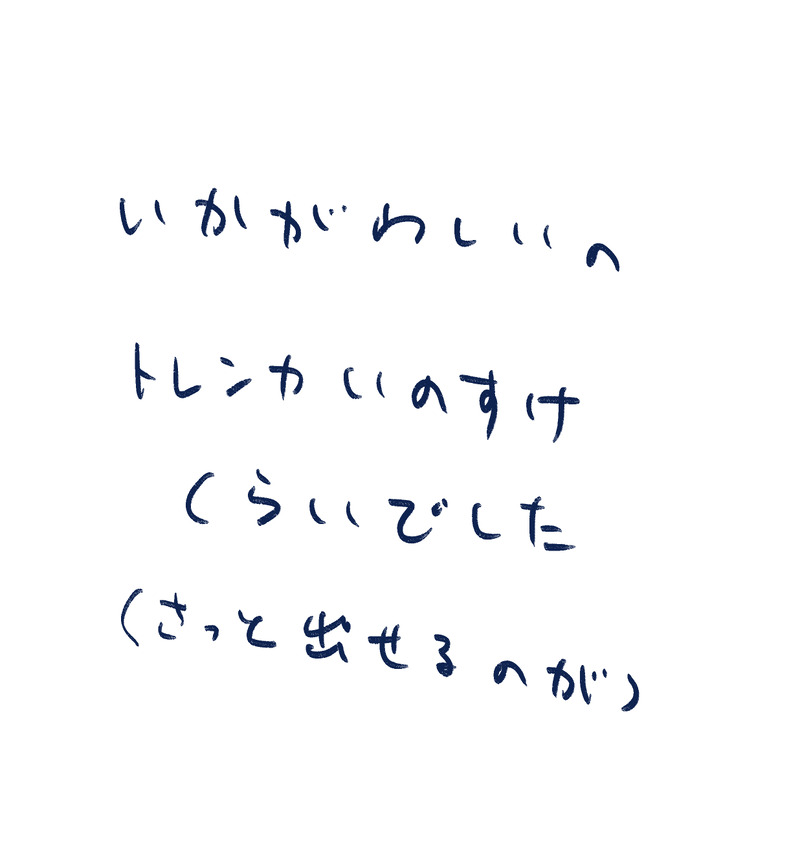 いかがわしいの
トレンカいのすけ
くらいでした
(さっと出せるのが)